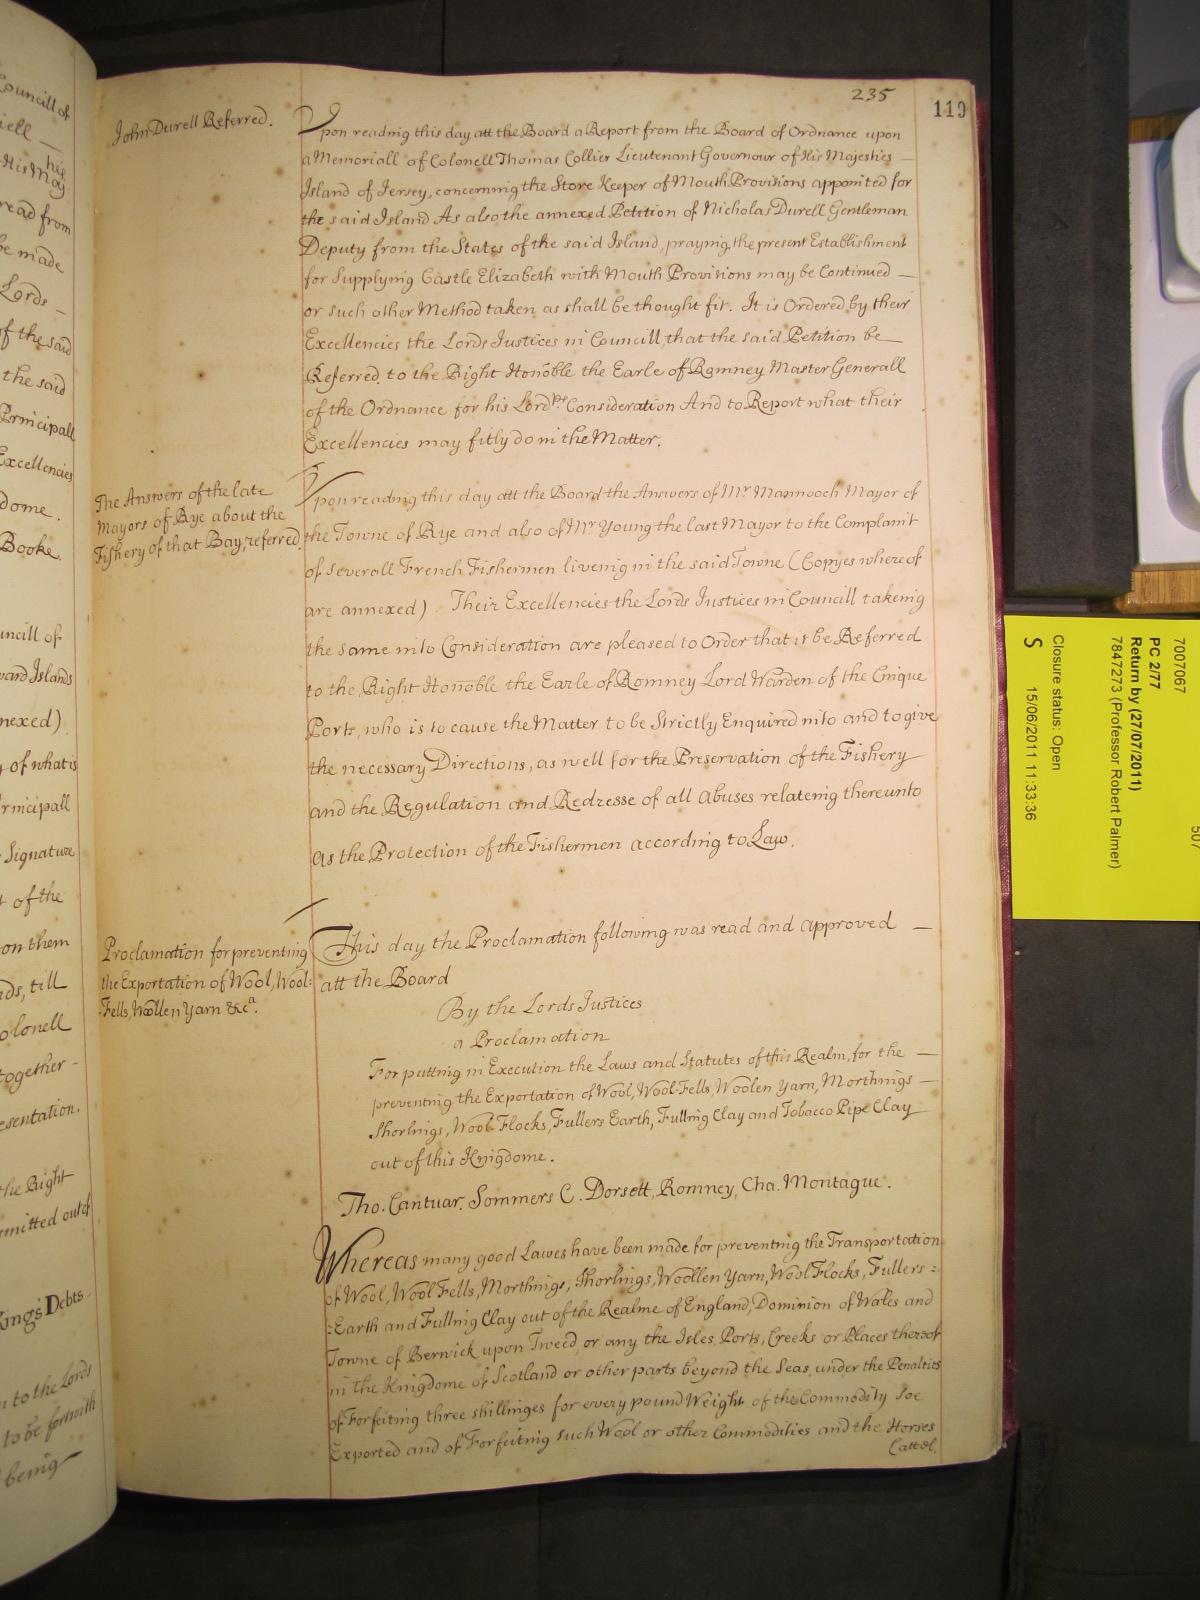 Councill of
iell —
his
His Maj:
read from
be made
Lords —
of the said
the said
Principall
Excellencies
dome.
Booke.
uncill of
ward Islands
nexed)
y of what is
Principall
Signature
t of the
on them
ds, till
olonell
together -
esentation.
the Right
rmitted out of
Kings Debts.
n to the Lords
to be forthwith
being
235
119
John Durell Referred.
Upon reading this day att the Board a Report from the Board of Ordnance upon
a Memoriall of Colonell Thomas Collier Lieutenant Governour of His Majesties —
Island of Jersey, concerning the Store Keeper of Mouth Provisions appointed for
the said Island As also the annexed Petition of Nicholas Durell Gentleman
Deputy from the States of the said Island, praying the present Establishment
for Supplying Castle Elizabeth with Mouth Provisions may be Continued —
or such other Method taken as shall be thought fit. It is Ordered by their
Excellencies the Lords Justices in Councill, that the said Petition be —
Referred to the Right Honoble the Earle of Romney Master Generall
of the Ordnance for his Lordps Consideration And to Report what their
Excellencies may fitly do in the Matter.
The Answers of the late
Mayors of Rye about the
Fishery of that Bay, referred.
Upon reading this day att the Board the Answers of Mr Mannooch Mayor of
the Towne of Rye and also of Mr Young the last Mayor to the Complaint
of severall French Fishermen liveing in the said Towne (Copyes where of
are annexed) Their Excellencies the Lords Justices in Councill takeing
the same into Consideration are pleased to Order that it be Referred
to the Right Honoble the Earle of Romney Lord Warden of the Cinque
Ports, who is to cause the Matter to be Strictly Enquired into and to give
the necessary Directions, as well for the Preservation of the Fishery
and the Regulation and Redresse of all Abuses relateing thereunto
as the Protection of the Fishermen according to Law.
Proclamation for preventing
the Exportation of Wool, Wool:
:Fells, Woollen Yarn &ca.
This day the Proclamation following was read and approved —
att the Board
By the Lords Justices
a Proclamation
For putting in Execution the Laws and Statutes of this Realm, for the —
preventing the Exportation of Wool, Wool-Fells, Woolen Yarn, Morthings —
Shorlings, Wool Flocks, Fullers Earth, Fulling Clay and Tobacco Pipe Clay
out of this Kingdome.
Tho. Cantuar. Sommers C. Dorsett, Romney, Cha. Montague.
Whereas many good Lawes have been made for preventing the Transportation
of Wool, Wool Fells, Morthings, Shorlings, Woollen Yarn, Wool Flocks, Fullers :
:Earth and Fulling Clay out of the Realme of England, Dominion of Wales and
Towne of Berwick upon Tweed, or any the Isles, Ports, Creeks or Places thereof
in the Kingdome of Scotland or other parts beyond the Seas, under the Penalties
of Forfeiting three shillinges for every pound Weight of the Commodity soe
Exported and of Forfeiting such Wool or other Commodities and the Horses
Cattel.
7007067
507
PC 2/77
Return by (27/07/2011)
7847273 (Professor Robert Palmer)
Closure status: Open
S
15/06/2011 11:33:36